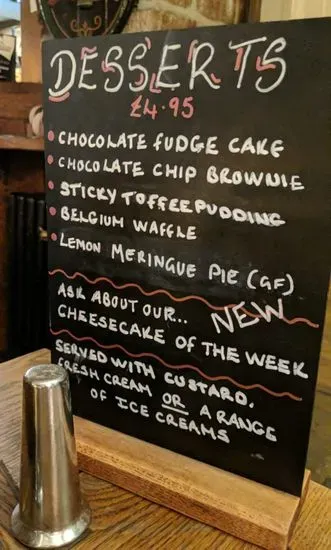 DESSERTS
£4.95
CHOCOLATE FUDGE CAKE
CHOCOLATE CHIP BROWNIE
STICKY TOFFEE PUDDING
BELGIUM WAFFLE
LEMON MERINGUE PIE (GF)
ASK ABOUT OUR... NEW
CHEESECAKE OF THE WEEK
SERVED WITH CUSTARD,
FRESH CREAM OR A RANGE
OF ICE CREAMS